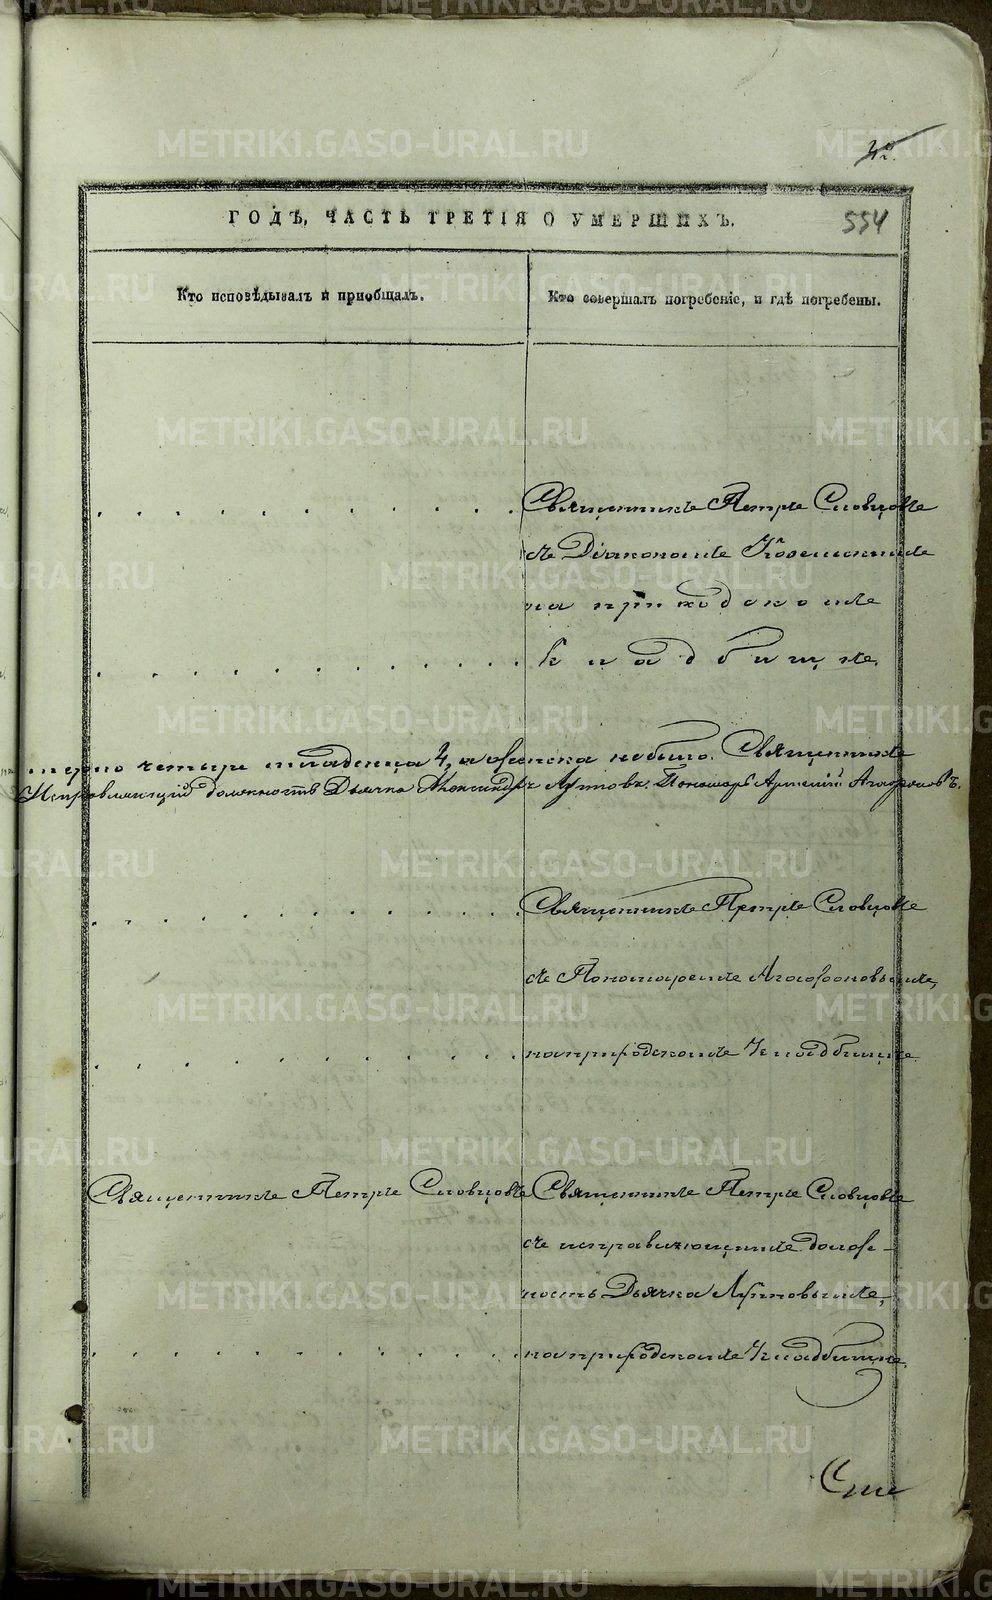 42.
ГОДЪ, ЧАСТЬ ТРЕТІЯ О УМЕРШИХЪ.
554
Кто исповѣдывалъ и приобщалъ.
Кто совершалъ погребеніе, и гдѣ погребены.
Священникъ Петръ Словцовъ
съ Діакономъ
на приходскомъ
кладбищѣ.
четыре младенца 4, а женска небыло. Священникъ
Исправляющій должность Дьячка Александръ Пономарь Арсеній Агафоновъ.
Священникъ Петръ Словцовъ
съ Пономаремъ Агафоновымъ,
на приходскомъ кладбищѣ.
Священникъ Петръ Словцовъ
Священникъ Петръ Словцовъ
съ исправляющимъ долж-
ность Дьячка
на приходскомъ кладбищѣ.
METRIKI.GASO-URAL.RU